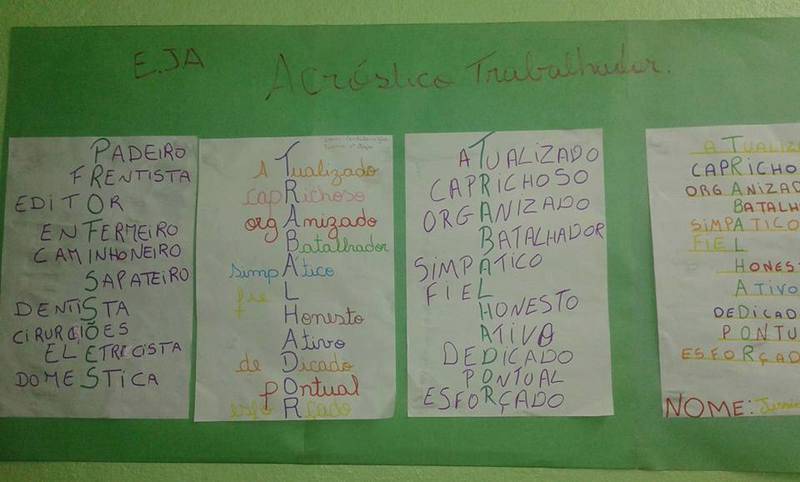 E.JA
Acróstico Trabalhador.
PADEIRO
FRENTISTA
EDITOR
ENFERMEIRO
CAMINHONEIRO
SAPATEIRO
DENTISTA
CIRURGIÕES
ELETRECISTA
DOMESTICA
ATualizado
capRichoso
orgAnizado
Batalhador
simpÁtico
fieL
Honesto
Ativo
deDicado
pOntual
esfoRçado
ATUALIZADO
CAPRICHOSO
ORGANIZADO
BATALHADOR
SIMPATICO
FIEL
HONESTO
ATIVO
DEDICADO
PONTUAL
ESFORÇADO
ATUALIZ
CAPRICHO
ORGANIZAD
BATALH
SIMPATICO
FIEL
HONEST
ATIVO
DEDICAD
PONTU
ESFORÇAD
NOME: